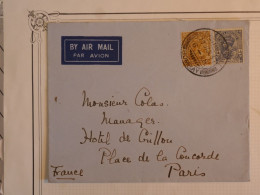 BY AIR MAIL
PAR AVION
Monsieur Colas.
Manager.
Hotel de Crillon
Place de la Concorde
France Paris